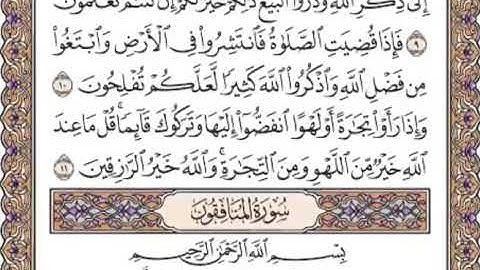 إِلَىٰ ذِكْرِ ٱللَّهِ وَذَرُوا۟ ٱلْبَيْعَ ذَٰلِكُمْ خَيْرٌ لَّكُمْ إِن كُنتُمْ تَعْلَمُونَ
٩ فَإِذَا قُضِيَتِ ٱلصَّلَوٰةُ فَٱنتَشِرُوا۟ فِى ٱلْأَرْضِ وَٱبْتَغُوا۟
مِن فَضْلِ ٱللَّهِ وَٱذْكُرُوا۟ ٱللَّهَ كَثِيرًا لَّعَلَّكُمْ تُفْلِحُونَ ١٠
وَإِذَا رَأَوْا۟ تِجَٰرَةً أَوْ لَهْوًا ٱنفَضُّوٓا۟ إِلَيْهَا وَتَرَكُوكَ قَآئِمًا ۚ قُلْ مَا عِندَ
ٱللَّهِ خَيْرٌ مِّنَ ٱللَّهْوِ وَمِنَ ٱلتِّجَٰرَةِ ۚ وَٱللَّهُ خَيْرُ ٱلرَّٰزِقِينَ ١١
سُورَةُ المُنَافِقُونَ
بِسْمِ ٱللَّهِ ٱلرَّحْمَٰنِ ٱلرَّحِيمِ